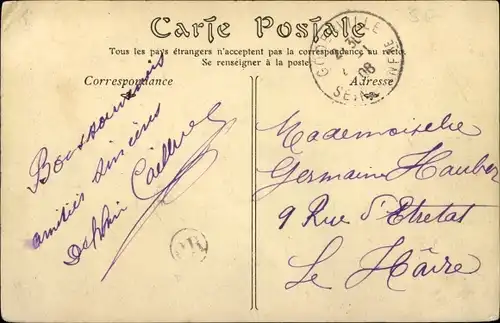 Carte Postale
Tous les pays étrangers n'acceptent pas la correspondance au recto.
Se renseigner à la poste.
Correspondance
Adresse
GODERVILLE
08
SEINE
Bons souvenirs
amitiés sincères
Mademoiselle
Germaine Hauber
9 Rue d'Etretat
Le Hâvre